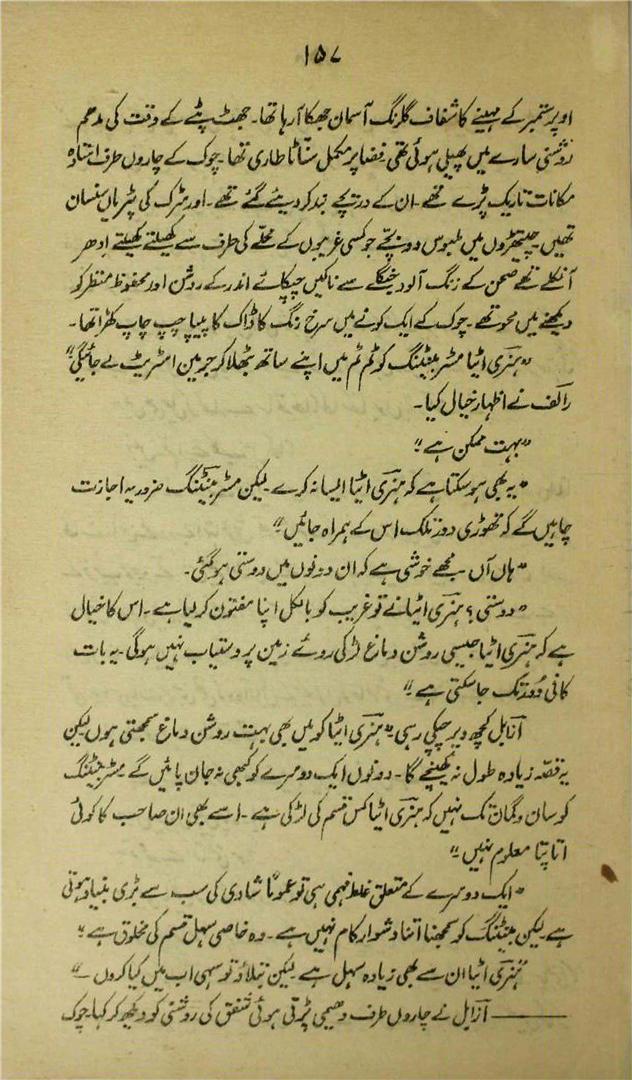 ۱۵۷
اوپر ستمبر کے مہینے کا شفاف گلرنگ آسمان جھکا آ رہا تھا۔ جھٹ پٹے کے وقت کی مدھم
روشنی سارے میں پھیلی ہوئی تھی فضا پر مکمل سناٹا طاری تھا۔ چوک کے چاروں طرف استادہ
مکانات تاریک پڑے تھے۔ ان کے دریچے بند کر دیئے گئے تھے۔ اور سڑک کی پٹریاں سنسان
تھیں۔ چیتھڑوں میں ملبوس دو بچّے جو کسی غریبوں کے محلّے کی طرف سے کھیلتے کھیلتے اِدھر
آ نکلے تھے صحن کے زنگ آلود جنگلے سے ناکیں چپکائے اندر کے روشن اور محفوظ منظر کو
دیکھنے میں محو تھے۔ چوک کے ایک کونے میں سرخ رنگ کا ڈاک کا پیپا چپ چاپ کھڑا تھا۔
"ہنری اٹیا مسٹر بینٹنگ کو ٹم ٹم میں اپنے ساتھ بٹھلا کر جرمین اسٹریٹ لے جائیگی"
رالف نے اظہار خیال کیا۔
"بہت ممکن ہے"
"یہ بھی ہو سکتا ہے کہ ہنری اٹیا ایسا نہ کرے۔ لیکن مسٹر بینٹنگ ضرور یہ اجازت
چاہیں گے کہ تھوڑی دور تلک اس کے ہمراہ جائیں"
"ہاں آں مجھے خوشی ہے کہ ان دونوں میں دوستی ہو گئی۔
"دوستی؟ ہنری اٹیا نے تو غریب کو بالکل اپنا مفتون کر لیا ہے۔ اس کا خیال
ہے کہ ہنری اٹیا جیسی روشن دماغ لڑکی روئے زمین پر دستیاب نہیں ہوگی۔ یہ بات
کافی دُور تک جا سکتی ہے"
آزابل کچھ دیر چپکی رہی "ہنری اٹیا کو میں بھی بہت روشن دماغ سمجھتی ہوں لیکن
یہ قصّہ زیادہ طول نہ کھینچے گا۔ دونوں ایک دوسرے کو کبھی نہ جان پائیں گے مسٹر بینٹنگ
کو سان و گمان تک نہیں کہ ہنری اٹیا کس قسم کی لڑکی ہے۔ اسے بھی ان صاحب کا کوئی
اتا پتا معلوم نہیں"
"ایک دوسرے کے متعلق غلط فہمی ہی تو عموماً شادی کی سب سے بڑی بنیاد ہوتی
ہے لیکن بینٹنگ کو سمجھنا اتنا دشوار کام نہیں ہے۔ وہ خاصی سہل قسم کی مخلوق ہے"
"ہنری اٹیا ان سے بھی زیادہ سہل ہے لیکن بتلاؤ تو سہی اب میں کیا کروں۔"
——— آزابل نے چاروں طرف دھیمی پڑتی ہوئی شفق کی روشنی کو دیکھ کر کہا۔ چوک